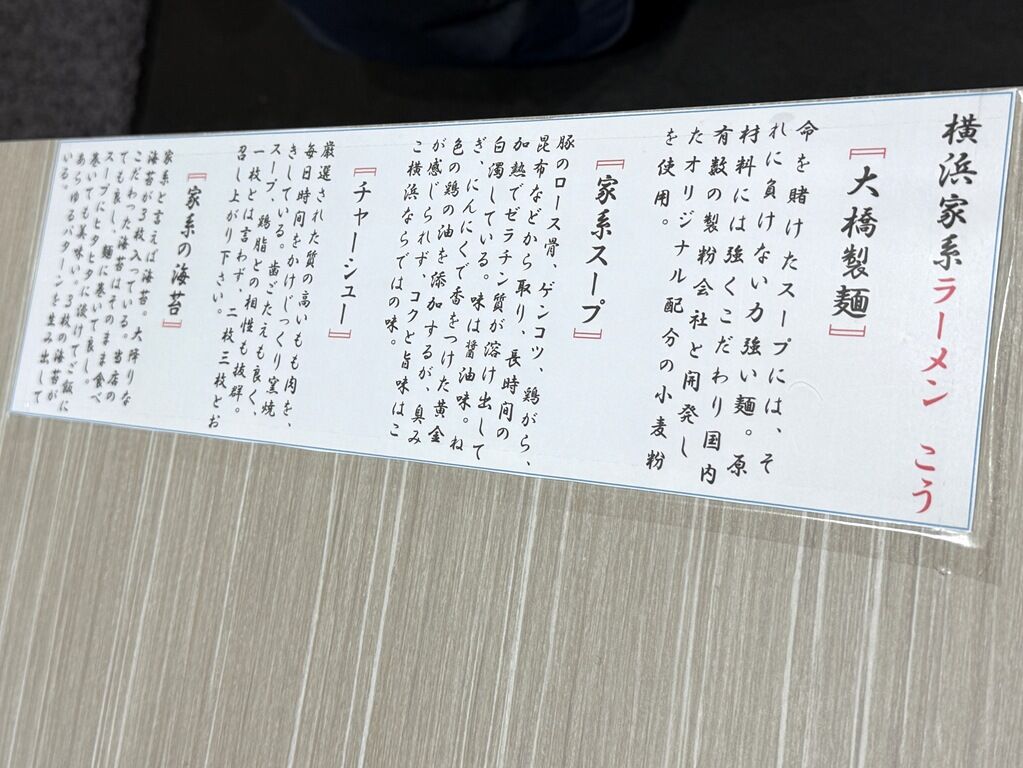 横浜家系ラーメン こう
『大橋製麺』
命を賭けたスープには、そ
れに負けない力強い麺。原
材料には強くこだわり国内
有数の製粉会社と開発し
たオリジナル配分の小麦粉
を使用。
『家系スープ』
豚のロース骨、ゲンコツ、鶏がら、
昆布などから取り、長時間の
加熱でゼラチン質が溶け出して
白濁している。味は醤油味。ね
ぎ、にんにくで香をつけた黄金
色の鶏の油を添加するが、臭み
が感じられず、コクと旨味はこ
こ横浜ならではの味。
『チャーシュー』
厳選された質の高いもも肉を、
毎日時間をかけじっくり窯焼
きしている。歯ごたえも良く、
スープ、鶏脂との相性も抜群。
一枚とは言わず、二枚三枚とお
召し上がり下さい。
『家系の海苔』
家系と言えば海苔。大降りな
海苔が3枚入っている。当店の
こだわった海苔はそのまま食べ
ても良し、麺に巻いて良し。
スープにヒタヒタに漬けてご飯に
巻いても美味い。3枚の海苔が
あらゆるパターンを生み出して
いる。